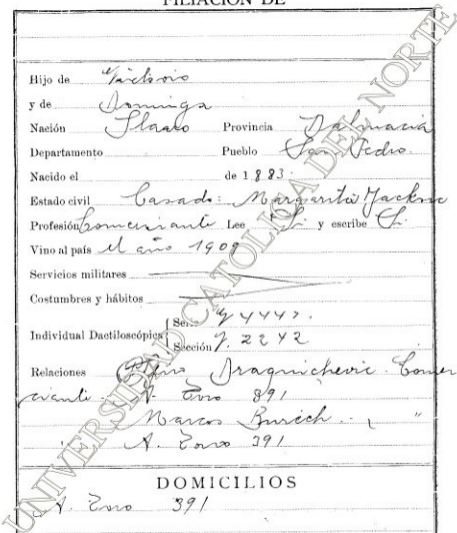 FILIACIÓN DE
Hijo de Victorio
y de Dominga
Nación Slavo Provincia Dalmacia
Departamento Pueblo San Pedro
Nacido el de 1883
Estado civil Casado: Margarita
Profesión Comerciante Lee Si y escribe Si
Vino al país el año 1909
Servicios militares
Costumbres y hábitos
Individual Dactiloscópica { Serie 4 4443.
Sección 2242
Relaciones Draguichevic Comer
ciante - A. Toro 391
Marcos Burich - "
A. Toro 391
DOMICILIOS
A. Toro 391
UNIVERSIDAD CATOLICA DEL NORTE